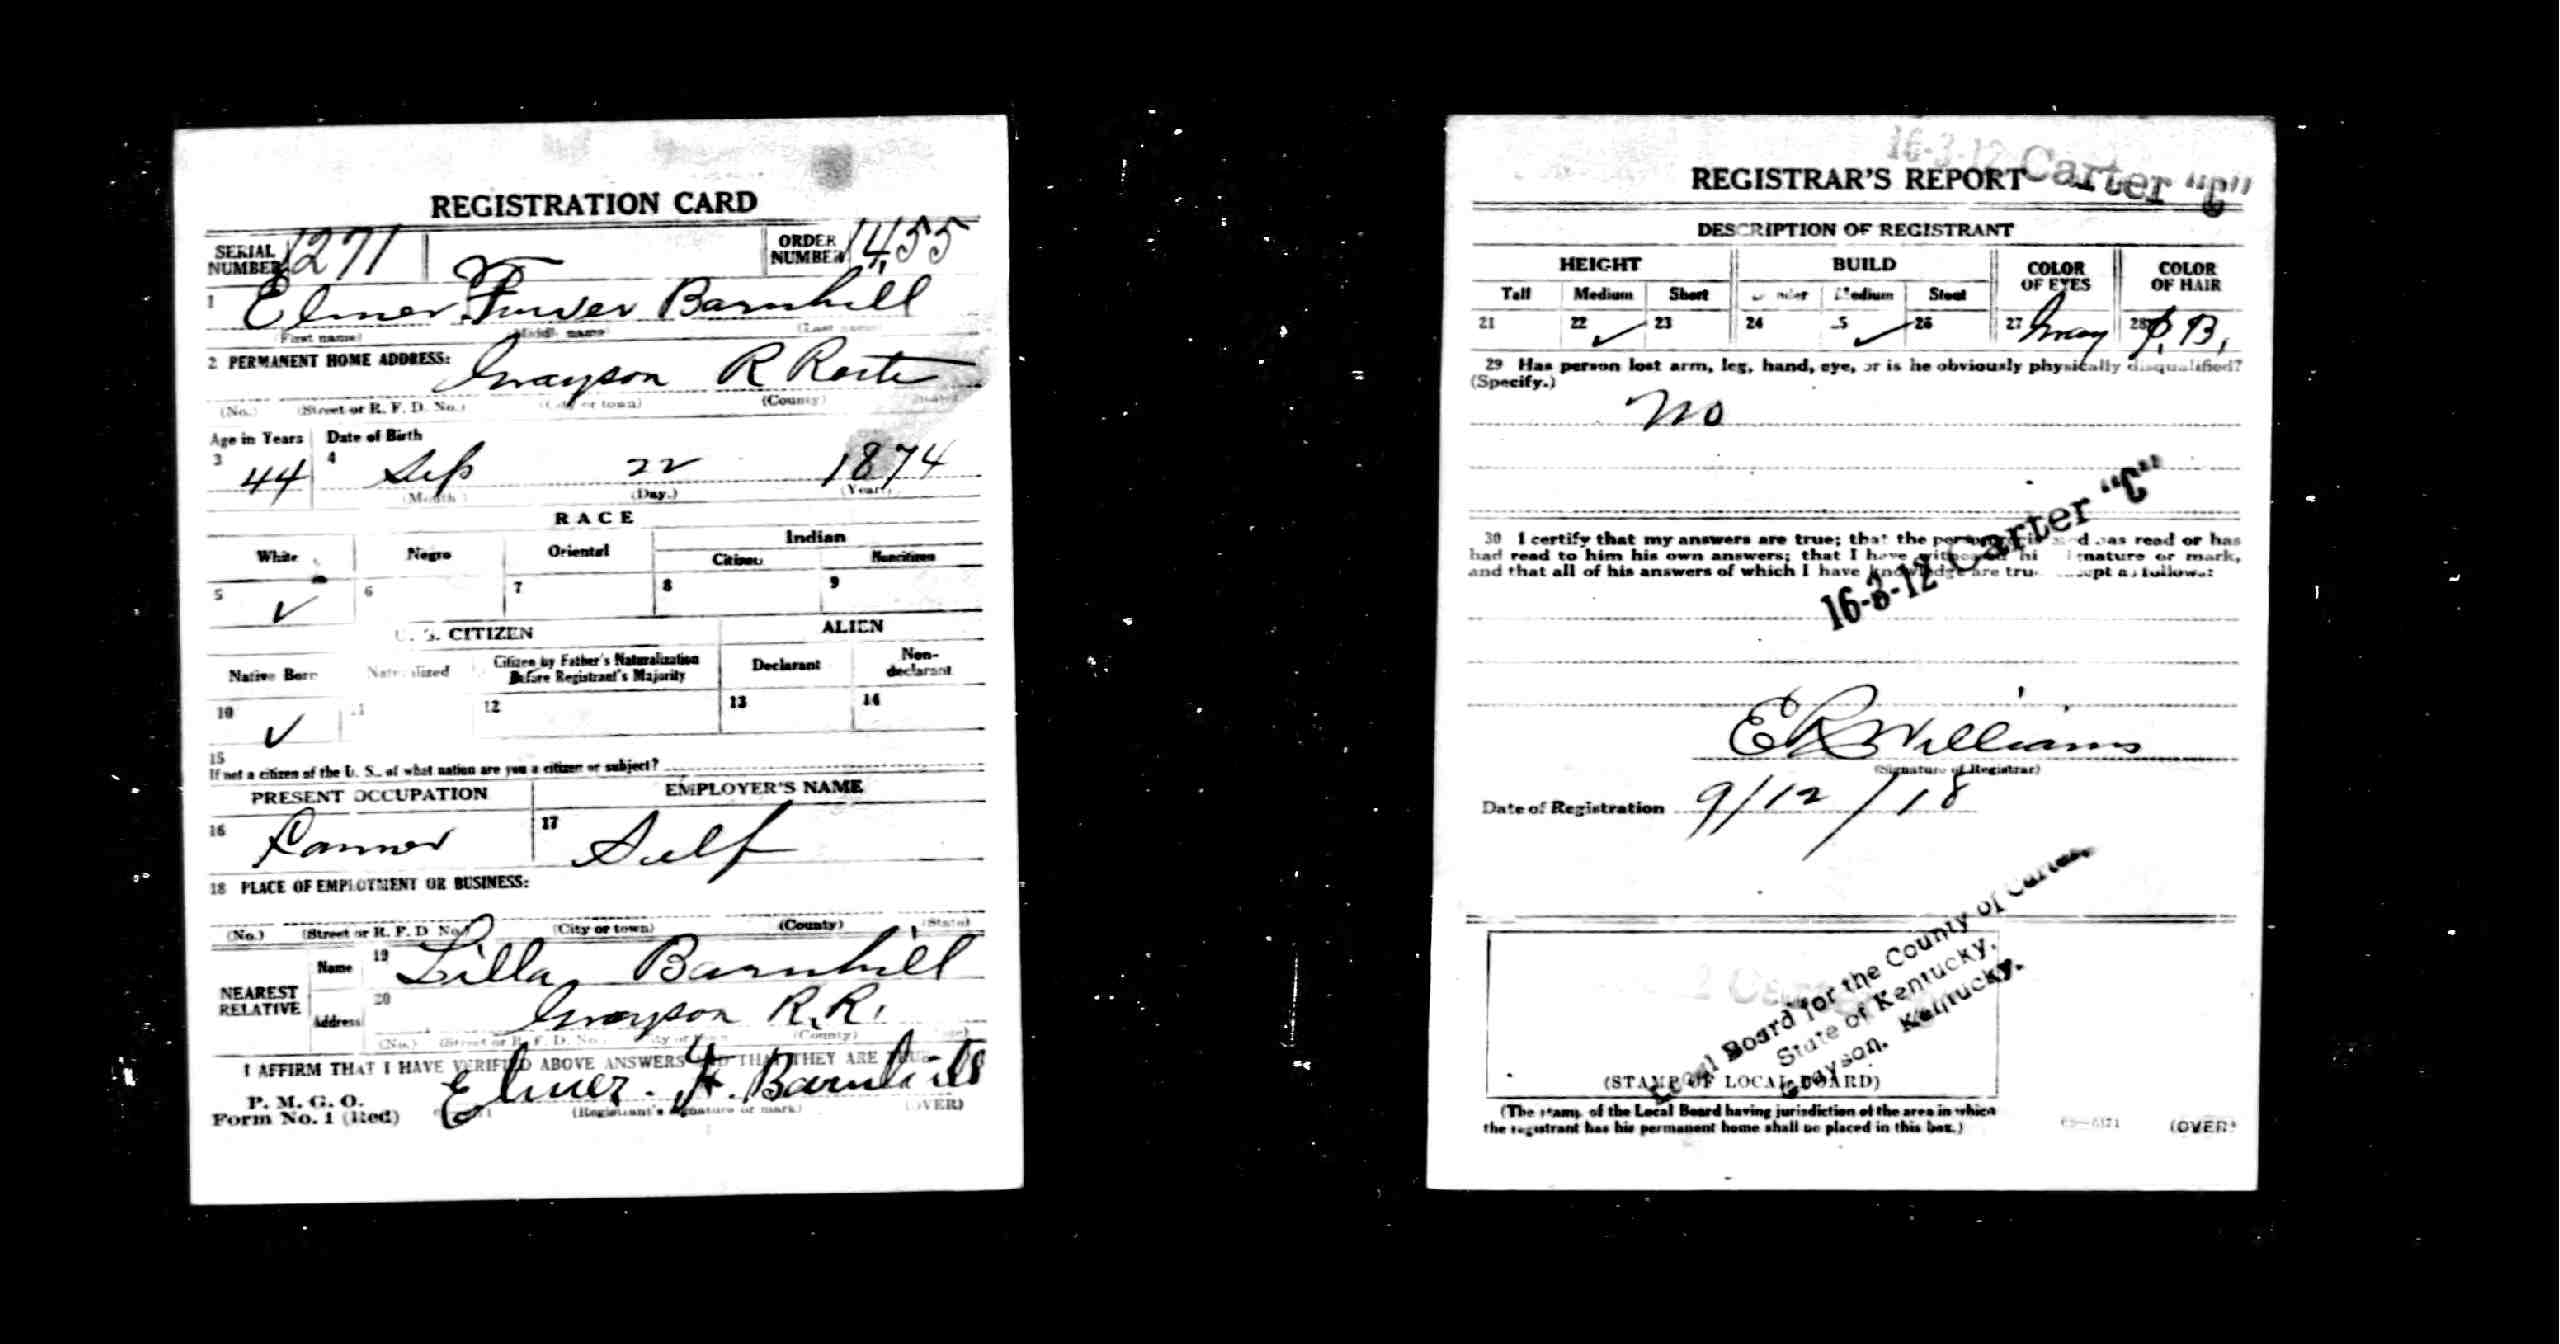 REGISTRATION CARD
SERIAL NUMBER 1271
ORDER NUMBER 1455
1 Elmer Barnhill
(First name) (Middle name) (Last name)
2 PERMANENT HOME ADDRESS:
Grayson R Carter
(No.) (Street or R. F. D. No.) (City or town) (County) (State)
Age in Years Date of Birth
3 44 4 Sep 22 1874
(Month.) (Day.) (Year.)
RACE
White Negro Oriental Indian
Citizen Noncitizen
5 ✓ 6 7 8 9
U. S. CITIZEN ALIEN
Native Born Naturalized Citizen by Father's Naturalization Before Registrant's Majority Declarant Non-declarant
10 ✓ 11 12 13 14
15
If not a citizen of the U. S., of what nation are you a citizen or subject?
PRESENT OCCUPATION EMPLOYER'S NAME
16 Farmer 17 Self
18 PLACE OF EMPLOYMENT OR BUSINESS:
(No.) (Street or R. F. D. No.) (City or town) (County) (State)
NEAREST RELATIVE
Name 19 Lilla Barnhill
Address 20 Grayson R.R.
(No.) (Street or R. F. D. No.) (City or town) (County) (State)
I AFFIRM THAT I HAVE VERIFIED ABOVE ANSWERS AND THAT THEY ARE TRUE
P. M. G. O.
Form No. 1 (Red)
Elmer F. Barnhill
(Registrant's signature or mark) (OVER)
16-3-12 Carter "C"
REGISTRAR'S REPORT
DESCRIPTION OF REGISTRANT
HEIGHT BUILD COLOR OF EYES COLOR OF HAIR
Tall Medium Short Slender Medium Stout
21 22 ✓ 23 24 25 ✓ 26 27 Gray 28 B,
29 Has person lost arm, leg, hand, eye, or is he obviously physically disqualified?
(Specify.)
No
30 I certify that my answers are true; that the person registered has read or has
had read to him his own answers; that I have witnessed his signature or mark,
and that all of his answers of which I have knowledge are true, except as follows:
16-3-12 Carter "C"
E R Williams
(Signature of Registrar)
Date of Registration 9/12/18
Local Board for the County of Carter,
State of Kentucky,
Grayson, Kentucky.
(STAMP OF LOCAL BOARD)
(The stamp of the Local Board having jurisdiction of the area in which
the registrant has his permanent home shall be placed in this box.)
(OVER)